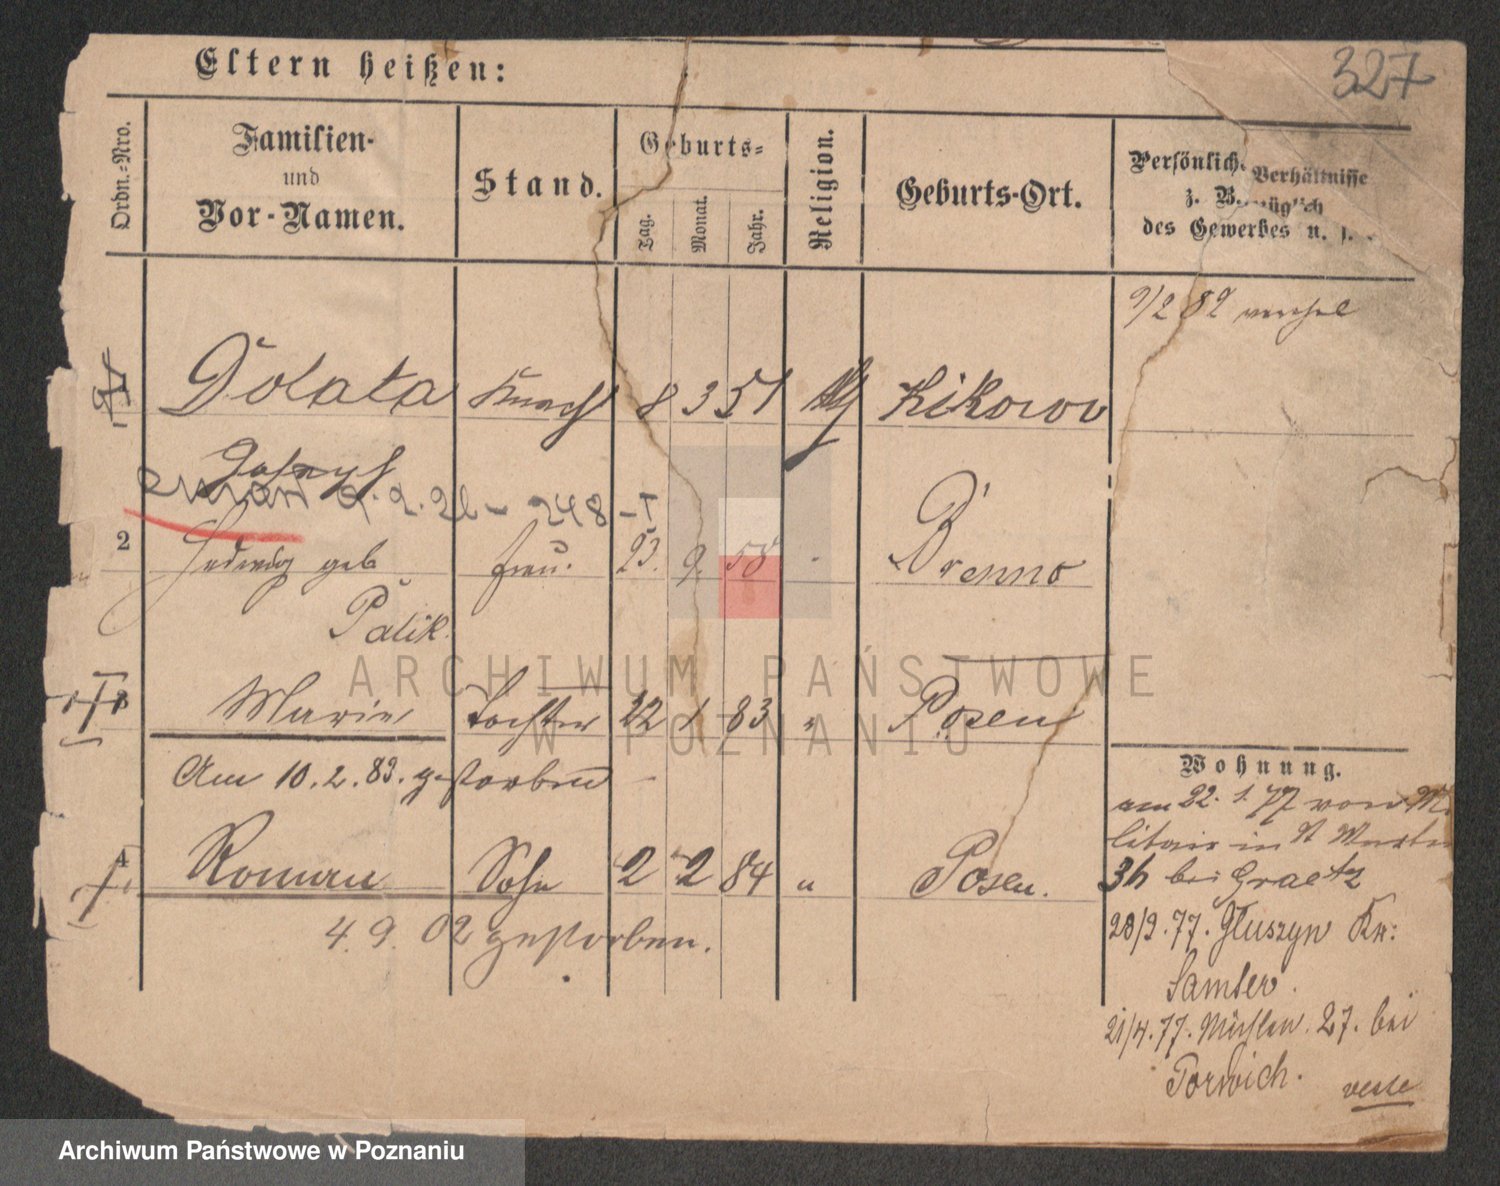 327
Eltern heißen:
Ordn.-Nro.
Familien-
und
Vor-Namen.
Stand.
Geburts-
Tag.
Monat.
Jahr.
Religion.
Geburts-Ort.
Persönliche Verhältnisse
z. B. bezüglich
des Gewerbes u. s.
9/2 82
1 Dolata Knecht 8 3 51 Kikorov
Joseph
9.2.26 - 248 - T
2 Hedwig geb Frau. 23. 9. 58 " Brenno
Palik.
3 Marie Tochter 22 1 83 " Posen
Am 10.2.83. gestorben
4 Roman Sohn 2 2 84 " Posen.
4.9.02 gestorben.
Wohnung.
am 22. 1. 77 von Mi
litair in St Martin
36 bei Graetz
28/2. 77. Gluszyn Kr:
Samter.
21/4. 77. Mühlen. 27. bei
Torwich.
ARCHIWUM PAŃSTWOWE
W POZNANIU
Archiwum Państwowe w Poznaniu